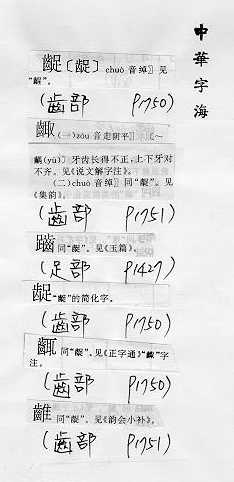 中華字海
齪〔龊〕chuò 音绰〗见
“龌”。
(齒部 P1750)
齱(一)zōu 音走阴平〗〔~
齵(yú)〗牙齿长得不正,上下牙对
不齐。见《说文解字注》。
(二)chuò 音绰〗同“龊”。见
《集韵》。
(齒部 P1751)
同“龊”。见《玉篇》。
(足部 P1427)
“龊”的简化字。
(齒部 P1750)
同“龊”。见《正字通》“齱”字
注。
(齒部 P1750)
同“龊”。见《韵会小补》。
(齒部 P1751)